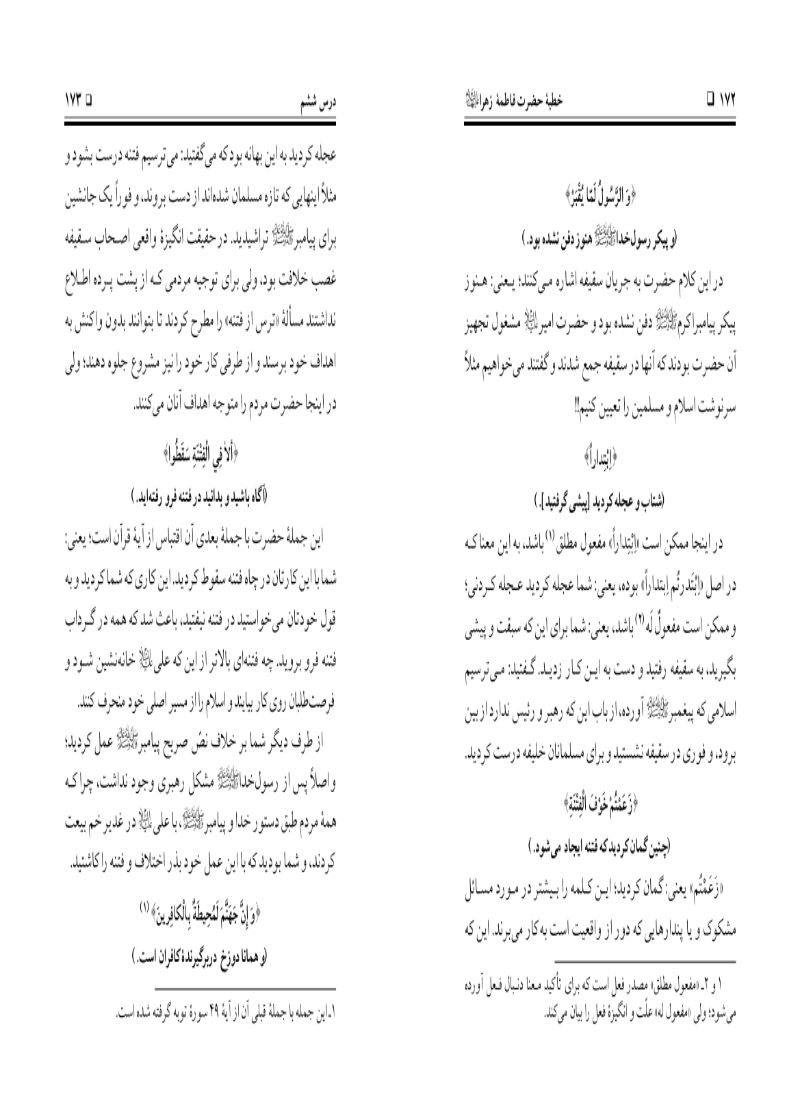 ۱۷۲ ❑ خطبهٔ حضرت فاطمهٔ زهراﷺ
﴿وَ الرَّسُولُ لَمّا يُقْبَرْ﴾
(و پیکر رسول‌خداﷺ هنوز دفن نشده بود.)
در این کلام حضرت به جریان سقیفه اشاره می‌کنند؛ یـعنی: هـنوز
پیکر پیامبراکرمﷺ دفن نشده بود و حضرت امیر مشغول تجهیز
آن حضرت بودند که آنها در سقیفه جمع شدند و گفتند می‌خواهیم مثلاً
سرنوشت اسلام و مسلمین را تعیین کنیم!!
﴿اِبْتِداراً﴾
(شتاب و عجله کردید [پیشی گرفتید].)
در اینجا ممکن است «اِبْتِداراً» مفعول مطلق(۱) باشد، به این معنا کـه
در اصل «اِبْتَدرتُم اِبتداراً» بوده، یعنی: شما عجله کردید عـجله کـردنی؛
و ممکن است مفعولٌ لَه(۲) باشد، یعنی: شما برای این که سبقت و پیشی
بگیرید، به سقیفه رفتید و دست به ایـن کـار زدیـد. گـفتید: مـی‌ترسیم
اسلامی که پیغمبرﷺ آورده، از باب این که رهبر و رئیس ندارد از بین
برود، و فوری در سقیفه نشستید و برای مسلمانان خلیفه درست کردید.
﴿زَعَمْتُمْ خَوْفَ الْفِتْنَةِ﴾
(چنین گمان کردید که فتنه ایجاد می‌شود.)
«زَعَمْتُم» یعنی: گمان کردید؛ ایـن کـلمه را بـیشتر در مـورد مسـائل
مشکوک و یا پندارهایی که دور از واقعیت است به کار می‌برند. این که
۱ و ۲ـ «مفعول مطلق» مصدر فعل است که برای تأکید مـعنا دنـبال فـعل آورده
می‌شود؛ ولی «مفعول له» علّت و انگیزهٔ فعل را بیان می‌کند.
درس ششم ❑ ۱۷۳
عجله کردید به این بهانه بود که می‌گفتید: می‌ترسیم فتنه درست بشود و
مثلاً اینهایی که تازه مسلمان شده‌اند از دست بروند، و فوراً یک جانشین
برای پیامبرﷺ تراشیدید. در حقیقت انگیزهٔ واقعی اصـحاب سـقیفه
غصب خلافت بود، ولی برای توجیه مردمی کـه از پشت پـرده اطـلاع
نداشتند مسألهٔ «ترس از فتنه» را مطرح کردند تا بتوانند بدون واکنش به
اهداف خود برسند و از طرفی کار خود را نیز مشروع جلوه دهند؛ ولی
در اینجا حضرت مردم را متوجه اهداف آنان می‌کنند.
﴿أَلاٰ فِي الْفِتْنَةِ سَقَطُوا﴾
(آگاه باشید و بدانید در فتنه فرو رفته‌اید.)
این جملهٔ حضرت با جملهٔ بعدی آن اقتباس از آیهٔ قرآن است؛ یعنی:
شما با این کارتان در چاه فتنه سقوط کردید. این کاری که شما کردید و به
قول خودتان می‌خواستید در فتنه نیفتید، باعث شد که همه در گـرداب
فتنه فرو بروید. چه فتنه‌ای بالاتر از این که علی خانه‌نشین شـود و
فرصت‌طلبان روی کار بیایند و اسلام را از مسیر اصلی خود منحرف کنند.
از طرف دیگر شما بر خلاف نصّ صریح پیامبرﷺ عمل کردید؛
و اصلاً پس از رسول‌خداﷺ مشکل رهبری وجود نداشت، چرا کـه
همهٔ مردم طبق دستور خدا و پیامبرﷺ، با علی در غدیر خم بیعت
کردند، و شما بودید که با این عمل خود بذر اختلاف و فتنه را کاشتید.
﴿وَ إِنَّ جَهَنَّمَ لَمُحِيطَةٌ بِالْكافِرينَ﴾(۱)
(و همانا دوزخ دربرگیرندهٔ کافران است.)
۱ـ این جمله با جملهٔ قبلی آن از آیهٔ ۴۹ سورهٔ توبه گرفته شده است.